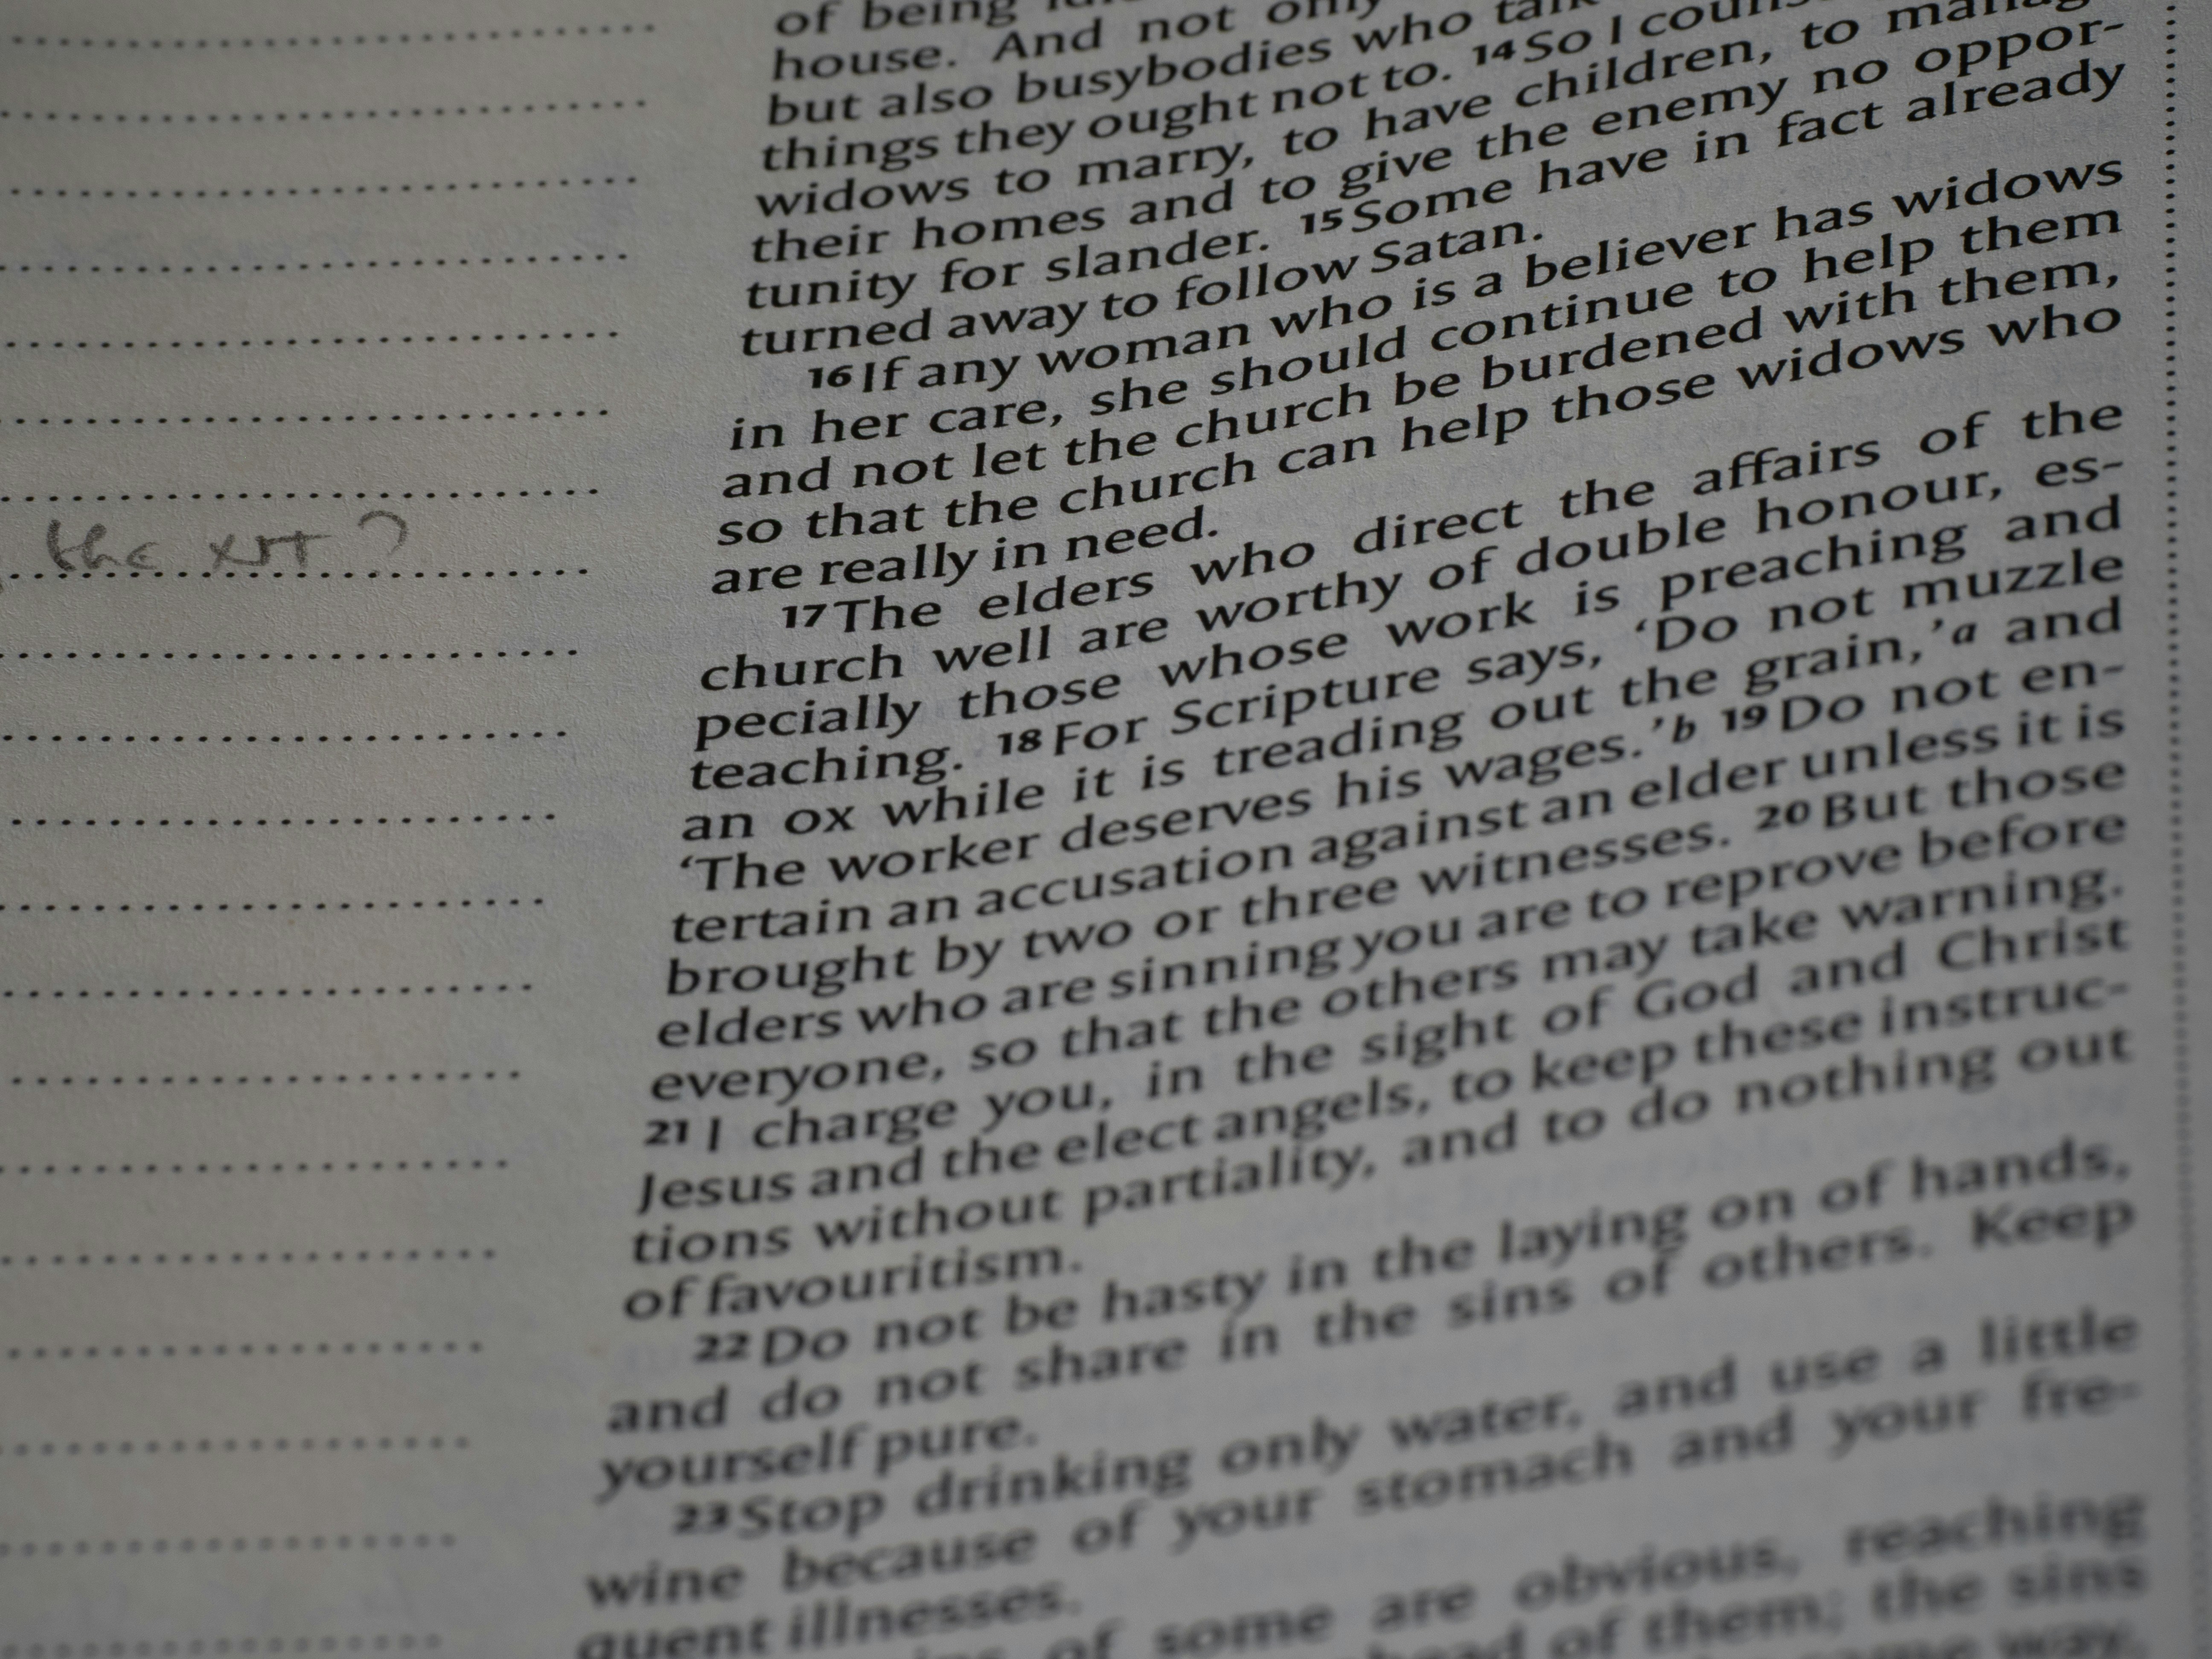 the xrt?
of being
house. And not only
but also busybodies who talk
things they ought not to. 14 So I
widows to marry, to have children, to
their homes and to give the enemy no oppor-
tunity for slander. 15 Some have in fact already
turned away to follow Satan.
16 If any woman who is a believer has widows
in her care, she should continue to help them
and not let the church be burdened with them,
so that the church can help those widows who
are really in need.
17 The elders who direct the affairs of the
church well are worthy of double honour, es-
pecially those whose work is preaching and
teaching. 18 For Scripture says, ‘Do not muzzle
an ox while it is treading out the grain,’a and
‘The worker deserves his wages.’b 19 Do not en-
tertain an accusation against an elder unless it is
brought by two or three witnesses. 20 But those
elders who are sinning you are to reprove before
everyone, so that the others may take warning.
21 I charge you, in the sight of God and Christ
Jesus and the elect angels, to keep these instruc-
tions without partiality, and to do nothing out
of favouritism.
22 Do not be hasty in the laying on of hands,
and do not share in the sins of others. Keep
yourself pure.
23 Stop drinking only water, and use a little
wine because of your stomach and your fre-
quent illnesses.
of some are obvious, reaching
of them; the sins
way.